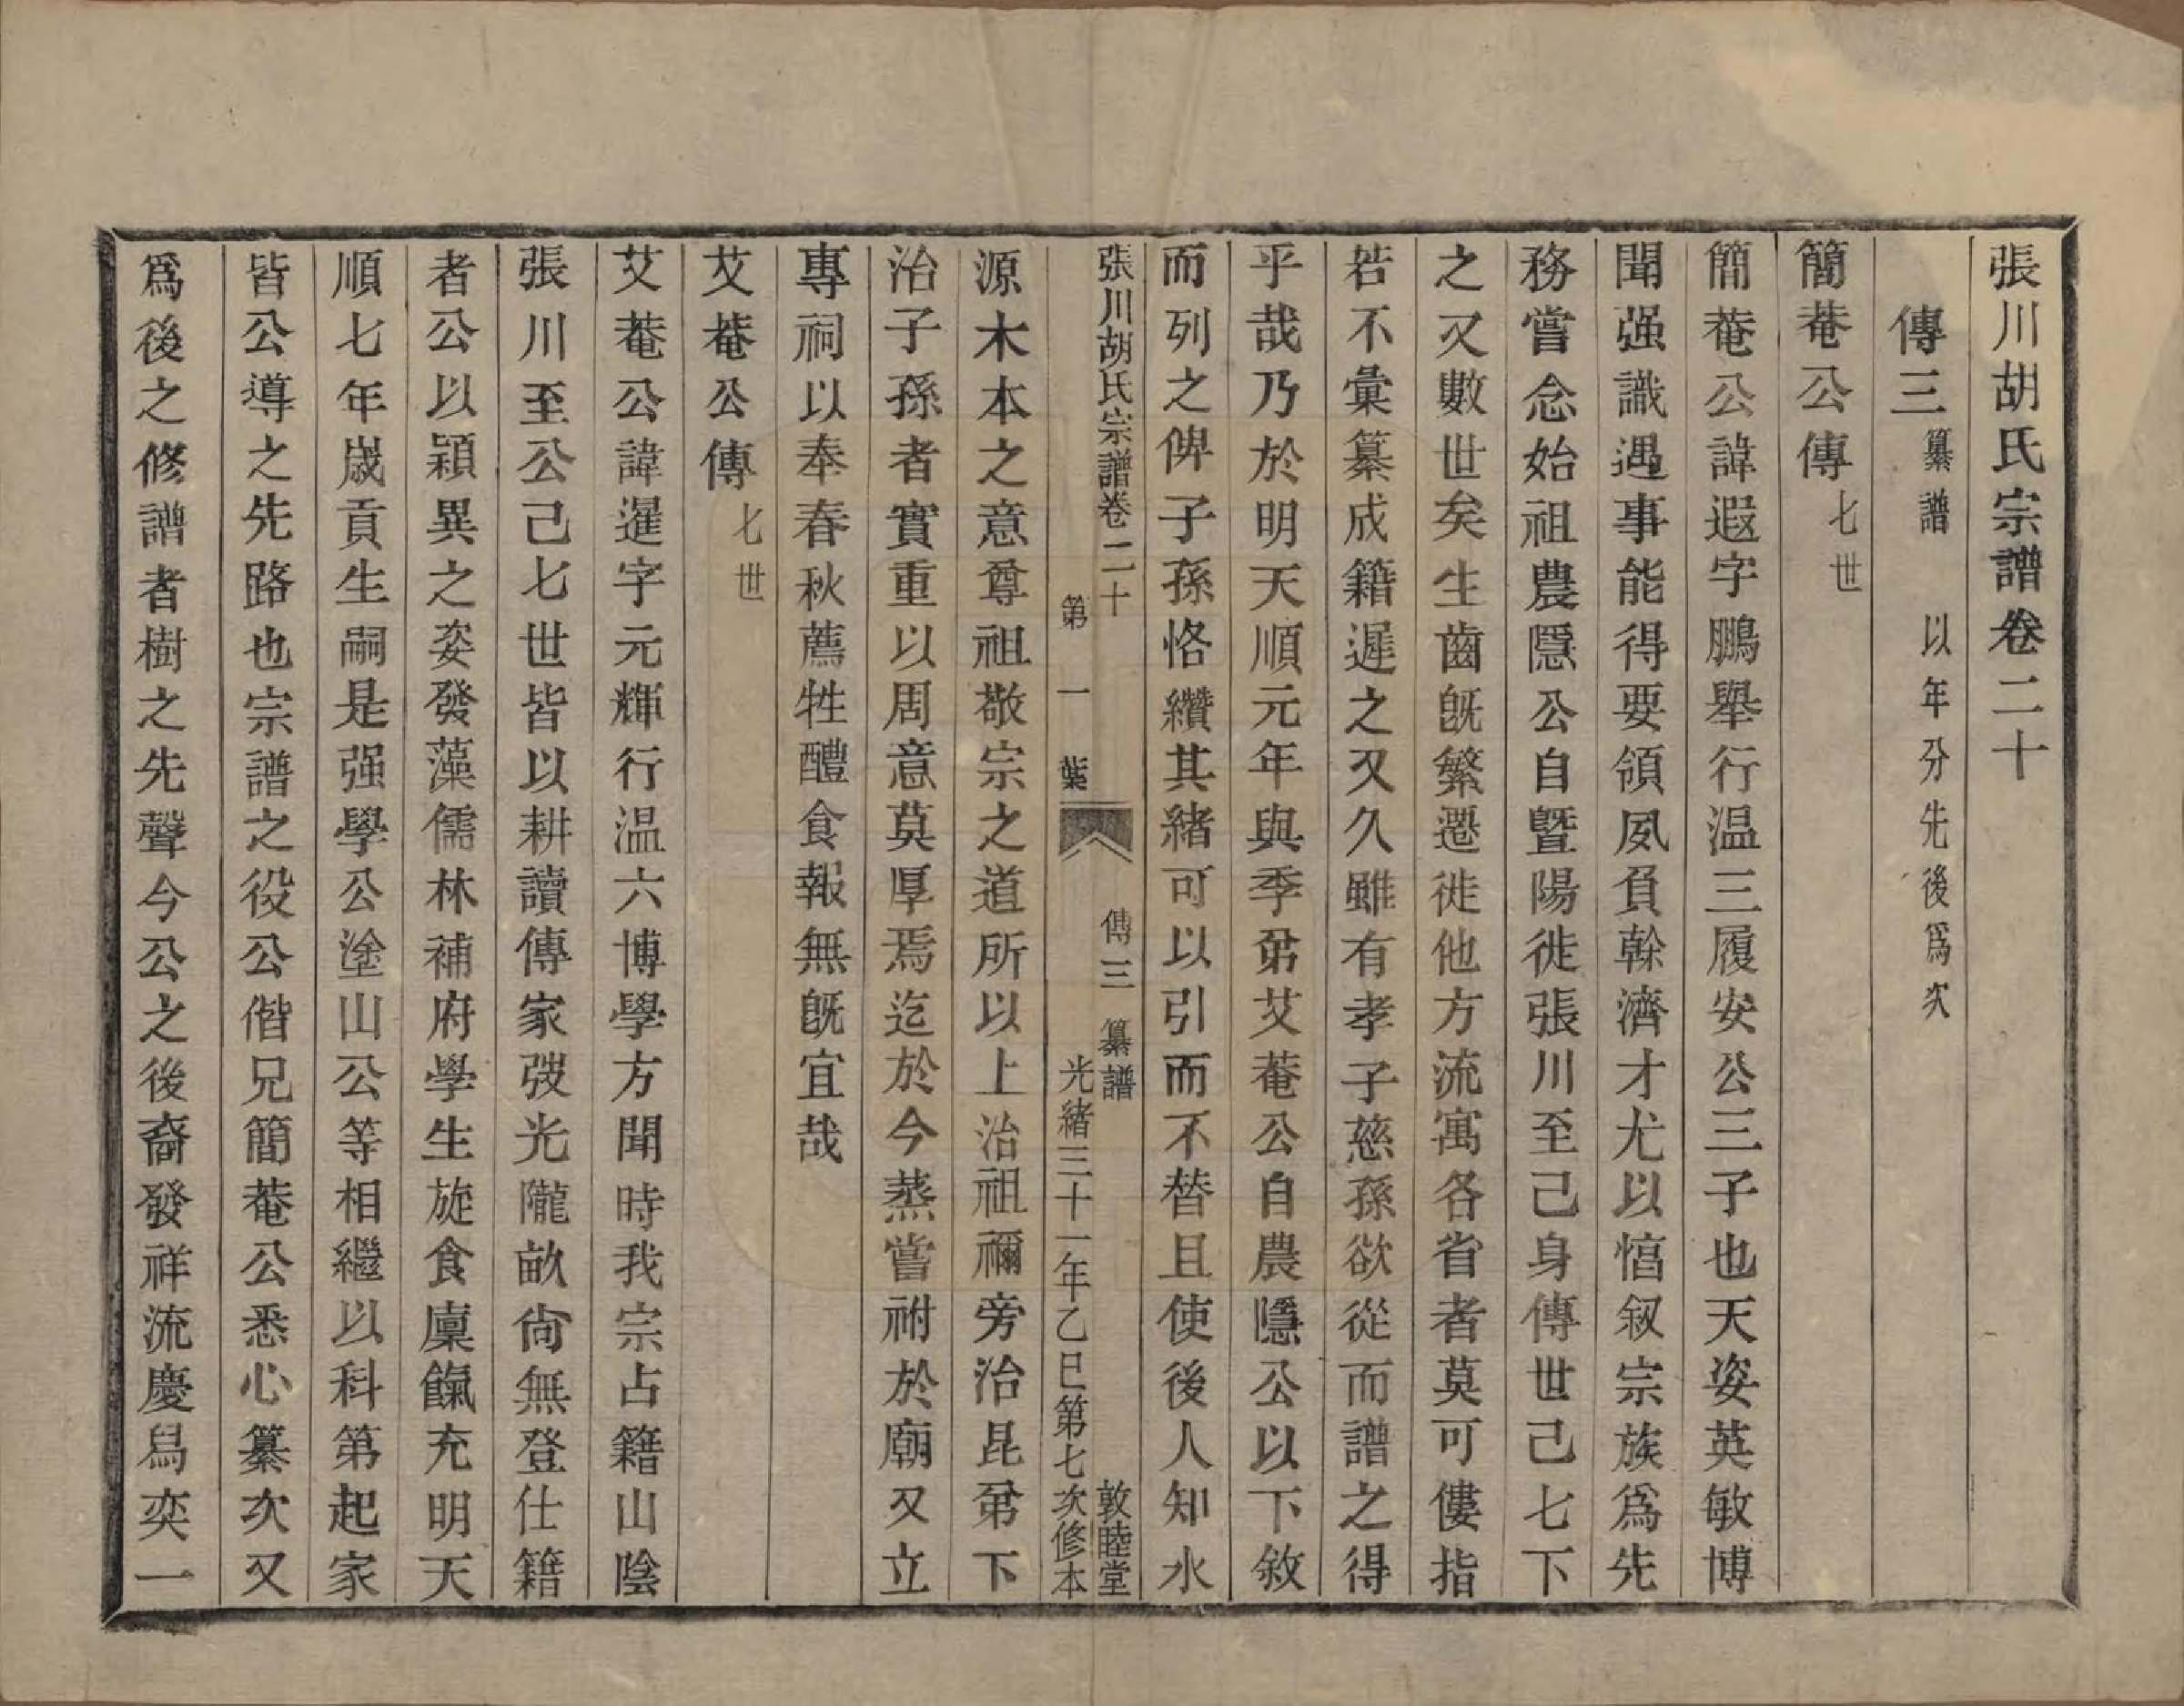 張川胡氏宗譜卷二十
傳三 纂譜 以年分先後爲次
簡菴公傳 七世
簡菴公諱遐字鵬舉行温三履安公三子也天姿英敏博
聞强識遇事能得要領夙負榦濟才尤以惇叙宗族爲先
務嘗念始祖農隱公自暨陽徙張川至己身傳世己七下
之又數世矣生齒旣繁遷徙他方流寓各省者莫可僂指
若不彙纂成籍遲之又久雖有孝子慈孫欲從而譜之得
乎哉乃於明天順元年與季弟艾菴公自農隱公以下敘
而列之俾子孫恪纘其緒可以引而不替且使後人知水
張川胡氏宗譜卷二十 傳三 纂譜 敦睦堂
第一葉 光緒三十一年乙巳第七次修本
源木本之意尊祖敬宗之道所以上治祖禰旁治昆弟下
治子孫者實重以周意莫厚焉迄於今蒸嘗祔於廟又立
專祠以奉春秋薦牲醴食報無旣宜哉
艾菴公傳 七世
艾菴公諱暹字元輝行温六博學方聞時我宗占籍山陰
張川至公己七世皆以耕讀傳家弢光隴畝尙無登仕籍
者公以穎異之姿發藻儒林補府學生旋食廩餼充明天
順七年歲貢生嗣是强學公塗山公等相繼以科第起家
皆公導之先路也宗譜之役公偕兄簡菴公悉心纂次又
爲後之修譜者樹之先聲今公之後裔發祥流慶舄奕一